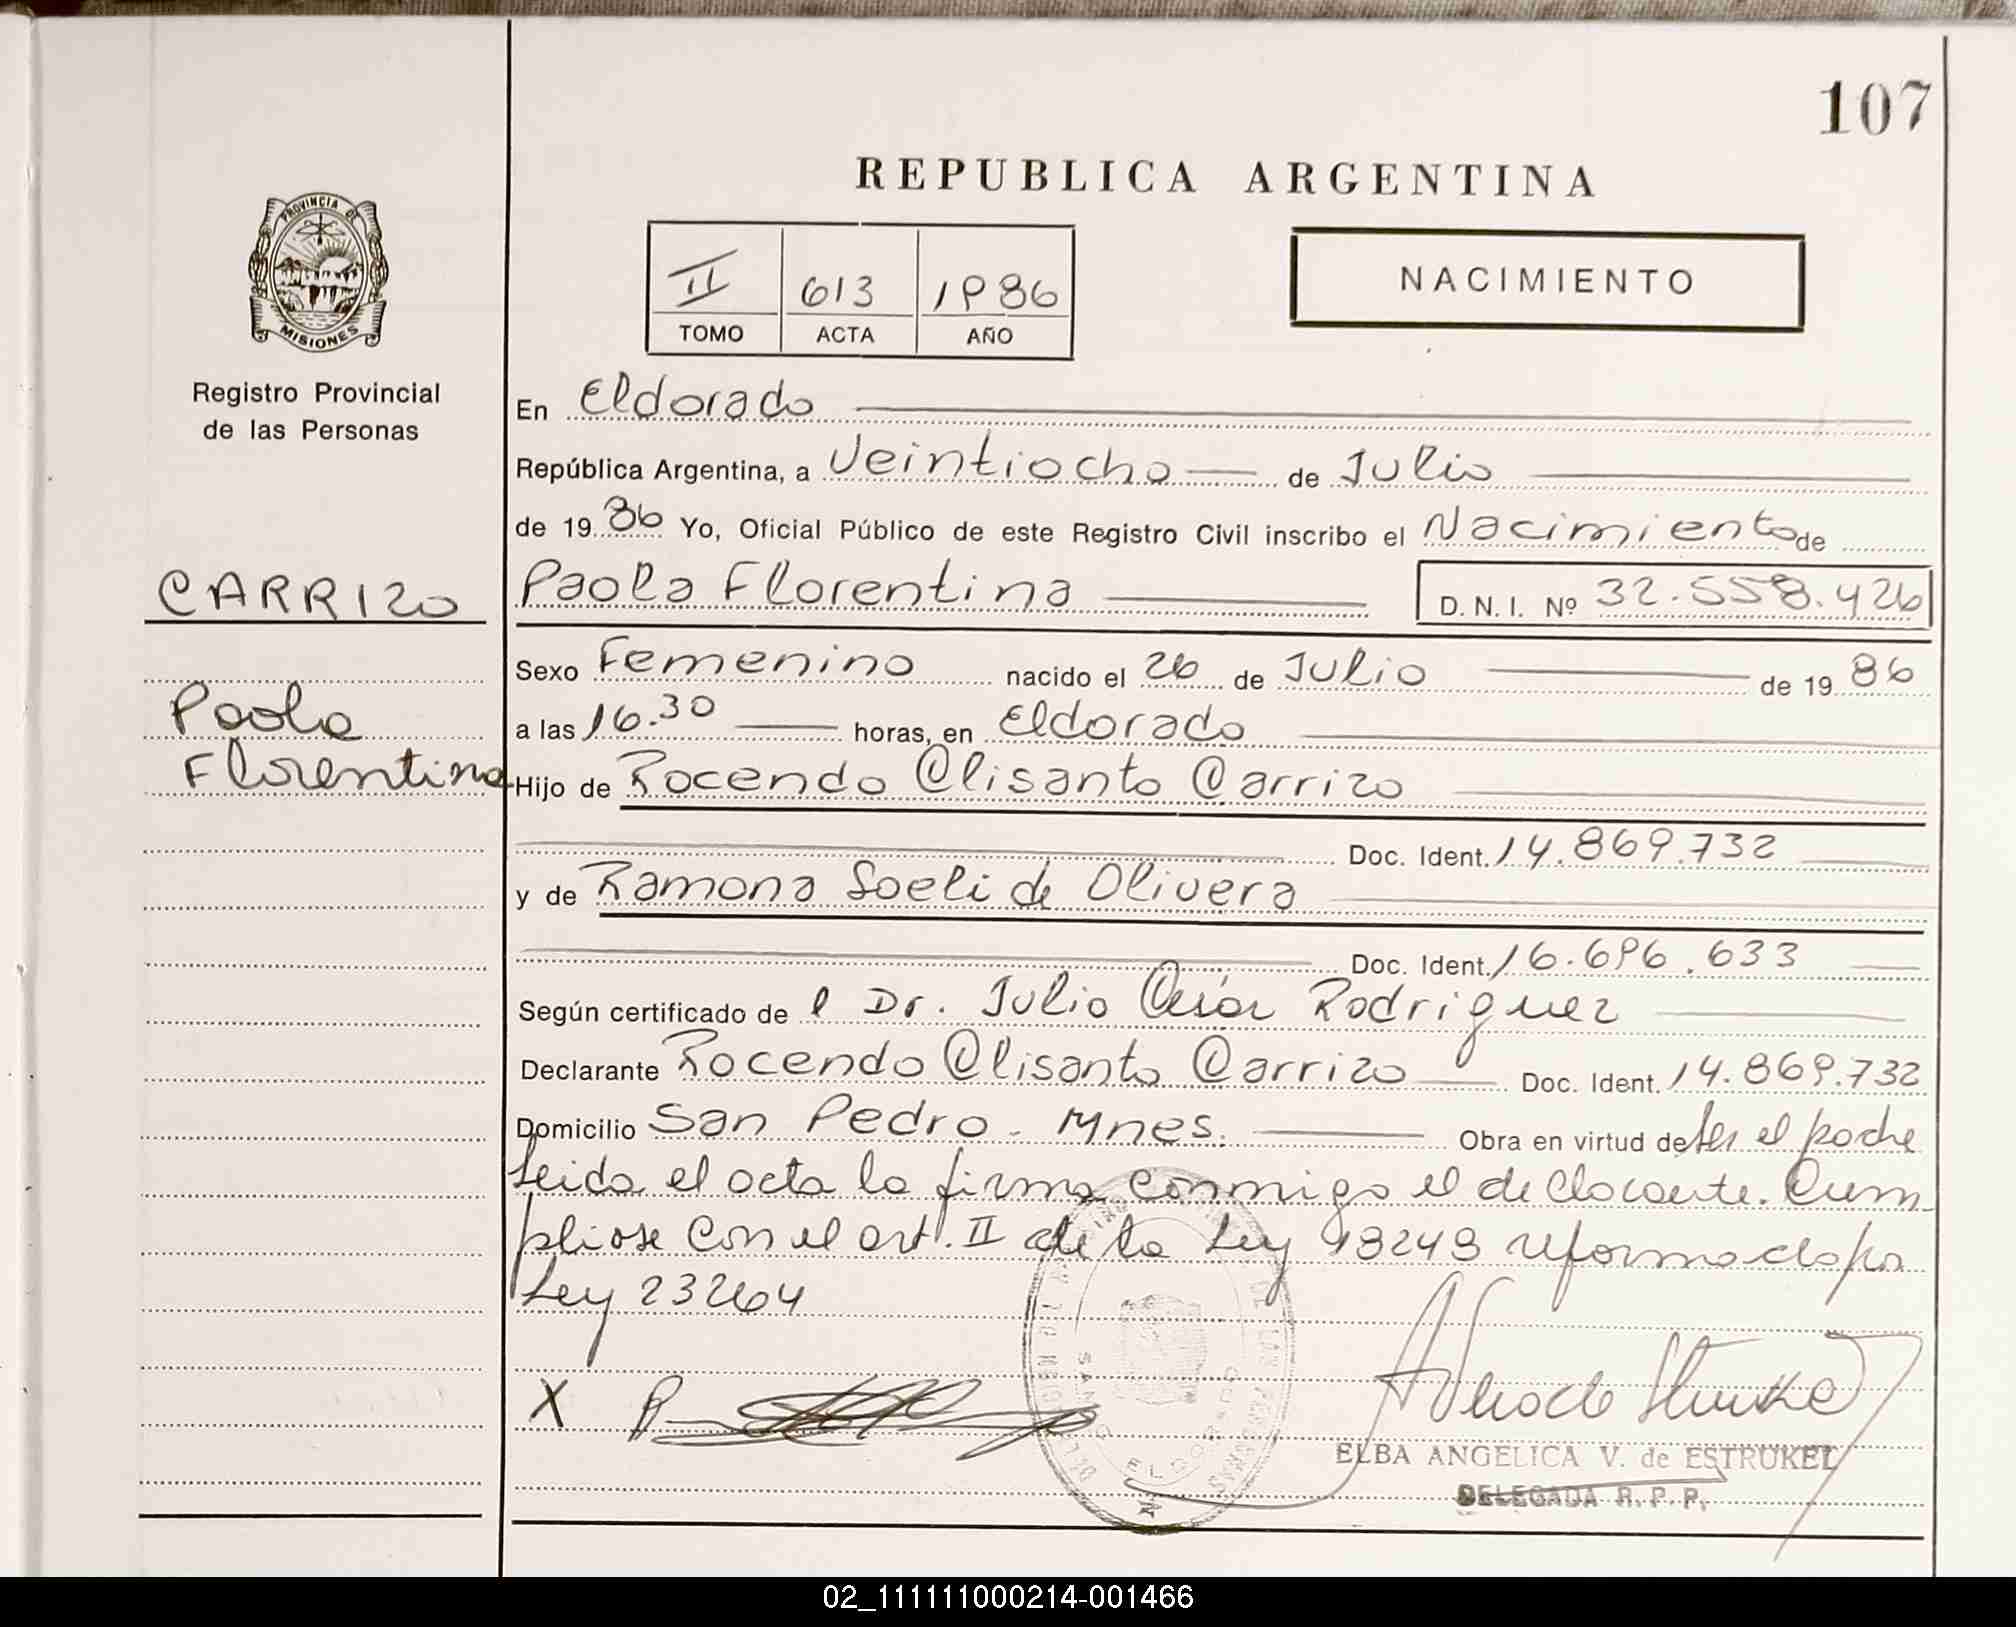 107
REPUBLICA ARGENTINA
PROVINCIA DE
MISIONES
Registro Provincial
de las Personas
II 613 1986
TOMO ACTA AÑO
NACIMIENTO
En Eldorado
República Argentina, a Veintiocho de Julio
de 19 86 Yo, Oficial Público de este Registro Civil inscribo el Nacimiento de
CARRIZO
Paola Florentina D. N. I. Nº 32.558.426
Sexo Femenino nacido el 26 de Julio de 19 86
Paola
a las 16.30 horas, en Eldorado
Florentina
Hijo de Rocendo Clisanto Carrizo
Doc. Ident. 14.869.732
y de Ramona Soeli de Olivera
Doc. Ident. 16.696.633
Según certificado de l Dr. Julio César Rodriguez
Declarante Rocendo Clisanto Carrizo Doc. Ident. 14.869.732
Domicilio San Pedro - Mnes. Obra en virtud de ser el padre
Leida el acta la firma conmigo el declarante. Cum
pliose con el art. II de la Ley 18248 reformado por
Ley 23264
X
ELDORADO
ELBA ANGELICA V. de ESTRUKEL
DELEGADA R. P. P.
02_111111000214-001466